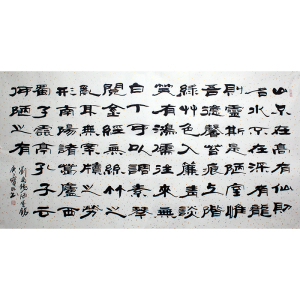 山不在高有仙則
名水不在深有龍
則靈斯是陋室惟
吾德馨苔痕上階
綠艸色入簾青談
笑有鴻儒往來無
白丁可以調素琴
閱金經無絲竹之
亂耳無案牘之勞
形南陽諸葛廬西
蜀子雲亭孔子云
何陋之有
劉禹錫陋室銘